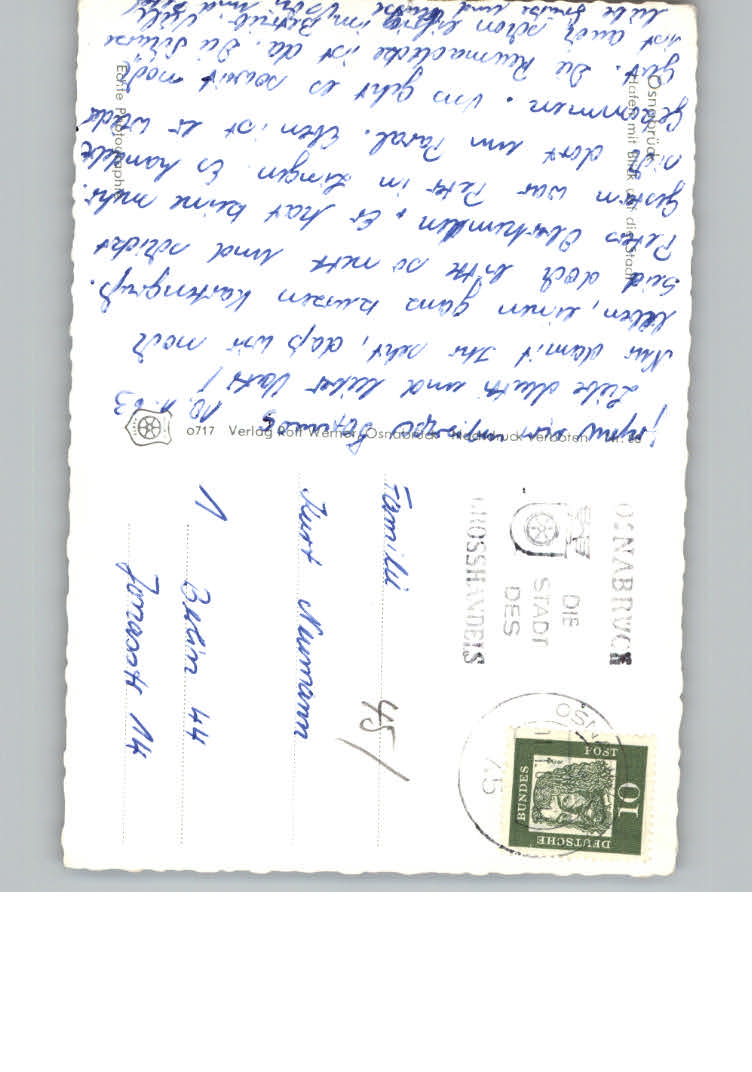 10.11.63
Liebe Mutti und lieber Vati!
Nur damit Ihr seht, daß wir noch
leben, einen ganz kurzen Kartengruß.
Seid doch bitte so nett und schickt
Peters Oberhemden. Er hat keine mehr.
Gestern war Peter in Lingen. Es handelte
sich dort um Eben ist er wieder
gekommen. Uns geht es soweit noch
gut. Die Reumadecke ist da. Die
ist auch schon im Betrieb. Viele
liebe Grüße und
Osnabrück
Hafen mit Blick auf die Stadt
Echte Photographie
0717 Verlag Rolf Werner, Osnabrück Nachdruck verboten Nr. 88
OSNABRÜCK
DIE
STADT
DES
GROSSHANDELS
OSN
DEUTSCHE
BUNDES
POST
10
45
Familie
Kurt Neumann
1 Berlin 44
Jonasstr 14